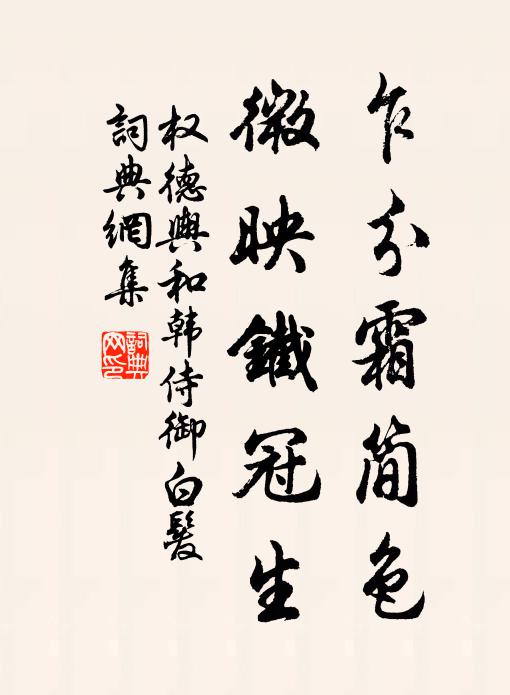 乍分霜簡色
微映鐵冠生
权德輿和韩侍御白髮
詞典網集
詞典網印